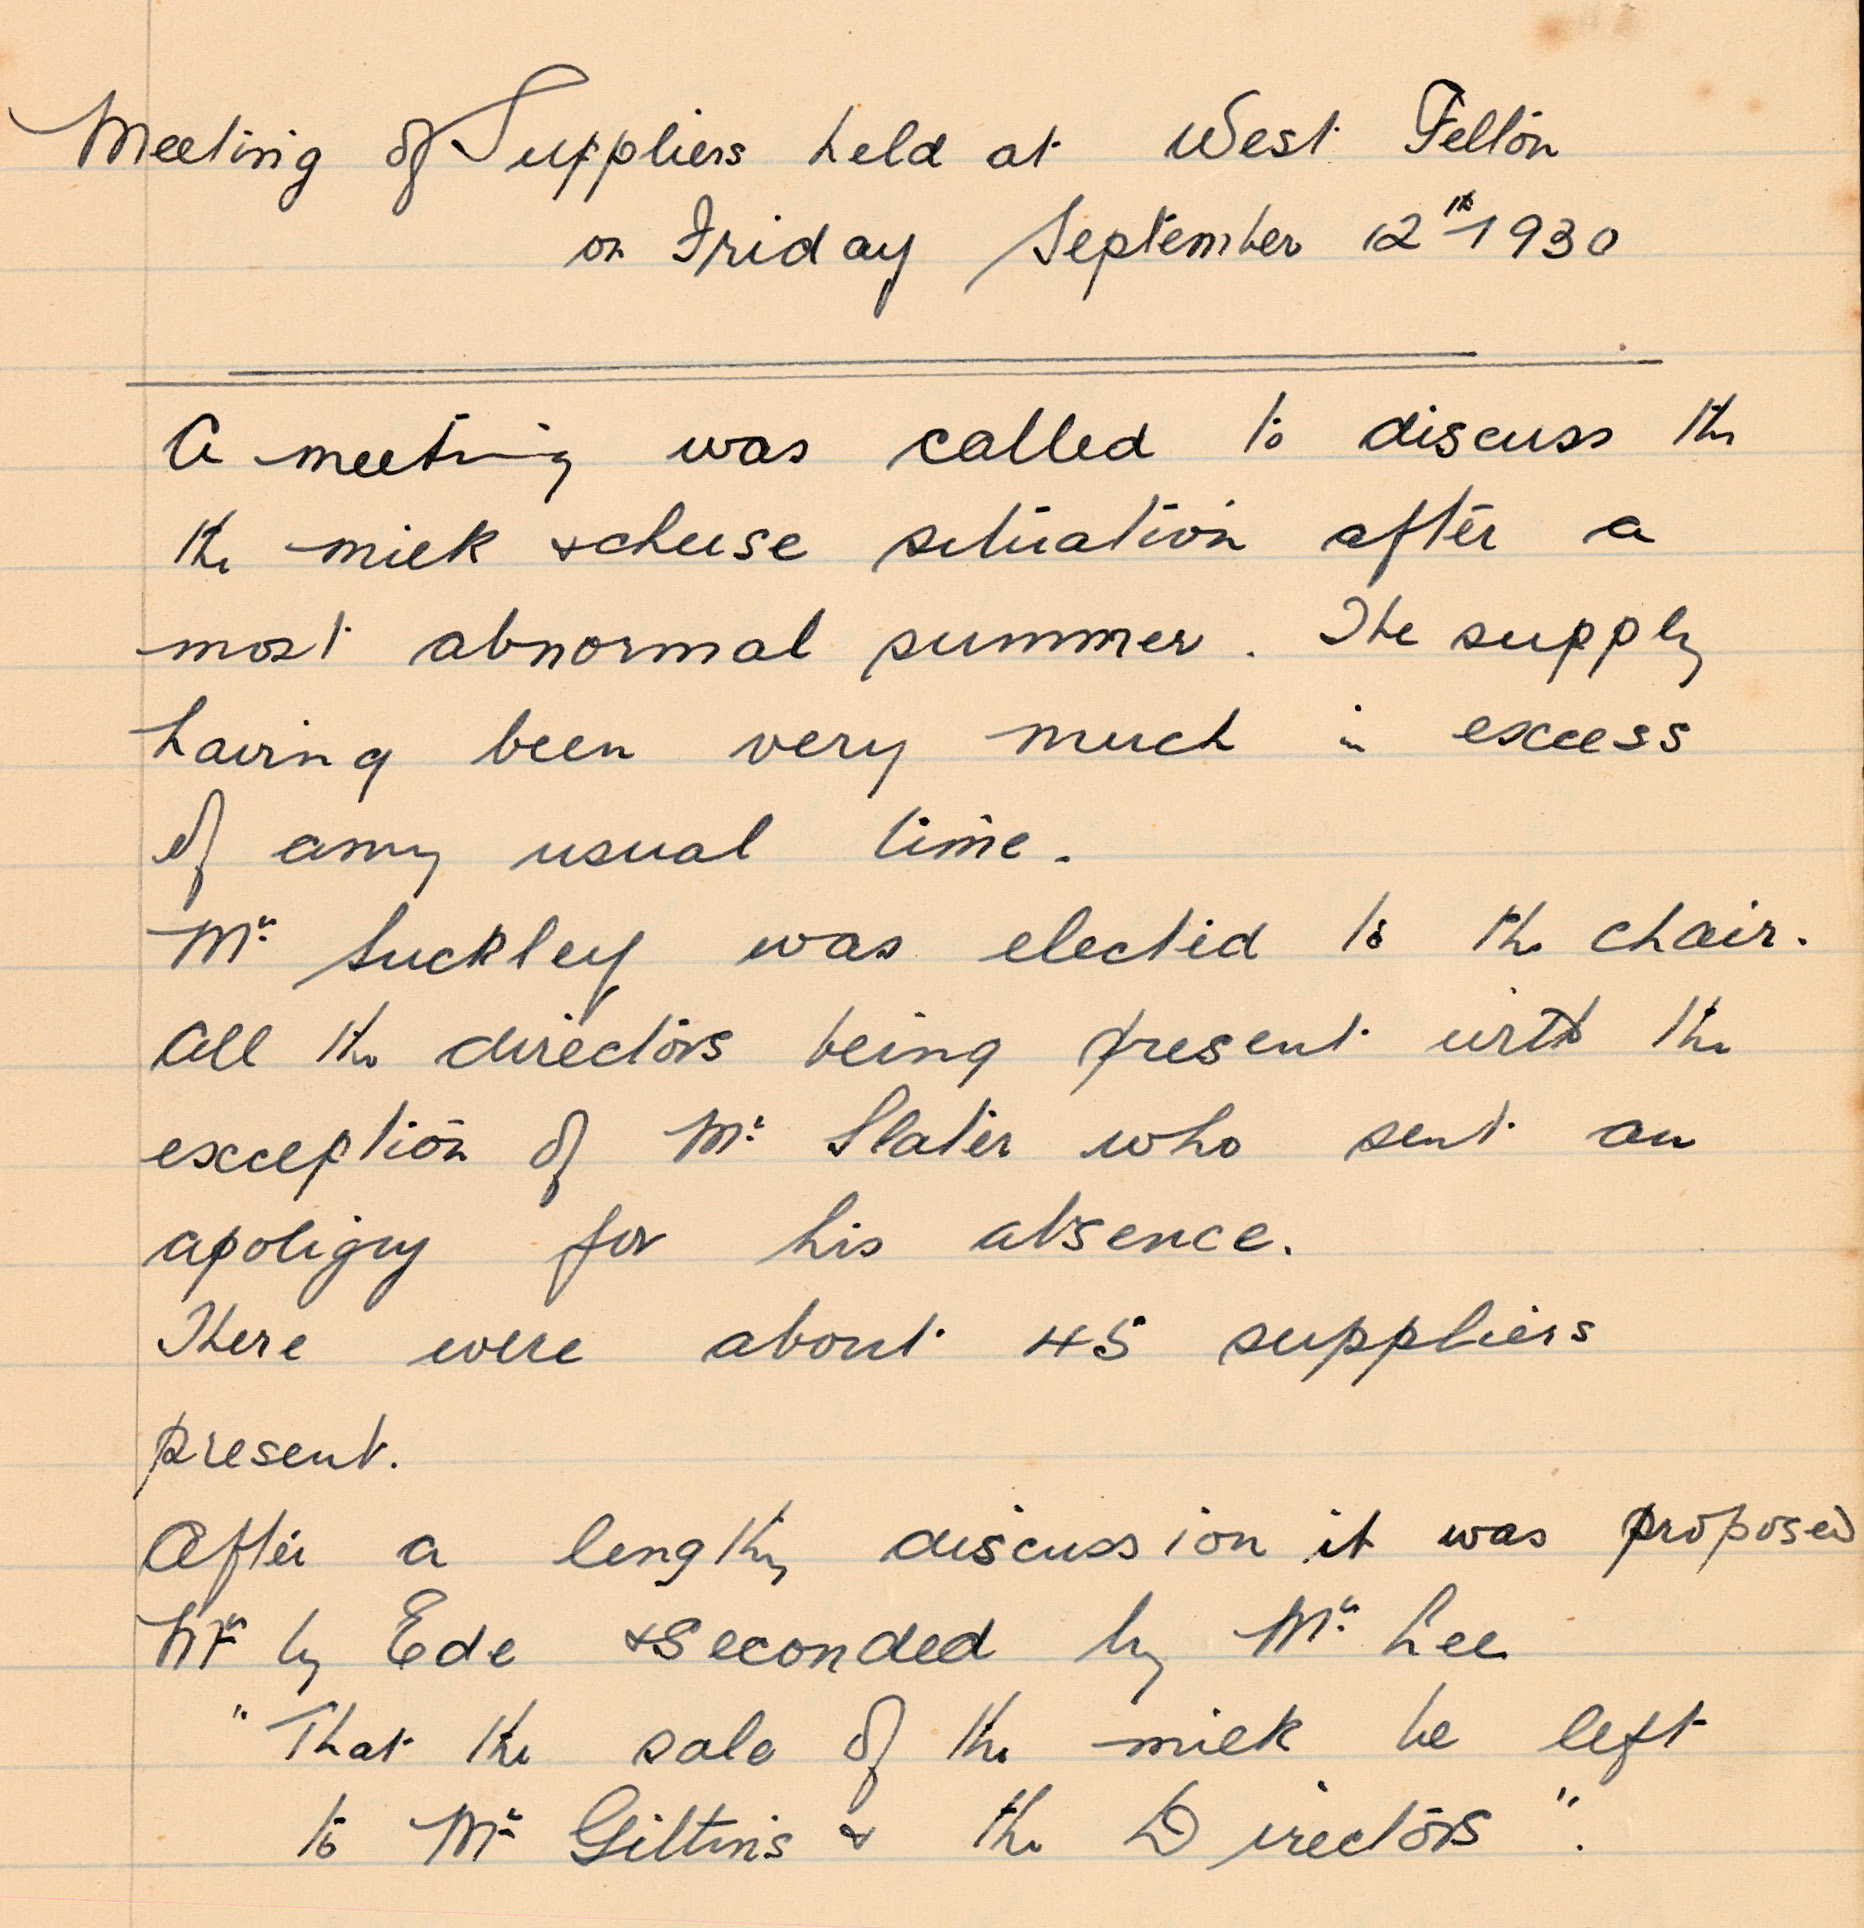 Meeting of Suppliers held at West Felton
on Friday September 12th 1930
A meeting was called to discuss the
the milk & cheese situation after a
most abnormal summer. The supply
having been very much in excess
of any usual time.
Mr. Suckley was elected to the chair.
All the directors being present with the
exception of Mr. Slater who sent an
apoligy for his absence.
There were about 45 suppliers
present.
After a lengthy discussion it was proposed
Mr by Ede & Seconded by Mr. Lee
"That the sale of the milk be left
to Mr. Gittins & the Directors".